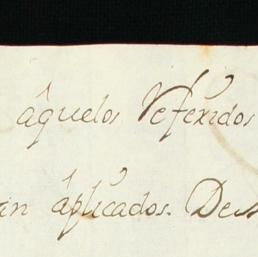 âquelos Referidos
an âplicados. De